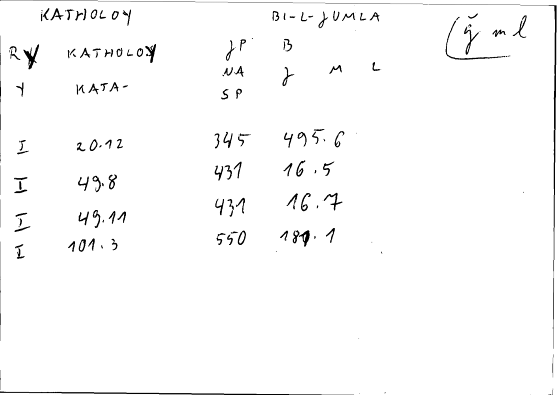 KATHOLOY BI-L-JUMLA
(ǧ m l
R Y KATHOLOY JP B
Y KATA- NA J M L
SP
I 20.12 345 495.6
I 49.8 431 16.5
I 49.11 431 16.7
I 101.3 550 181.1